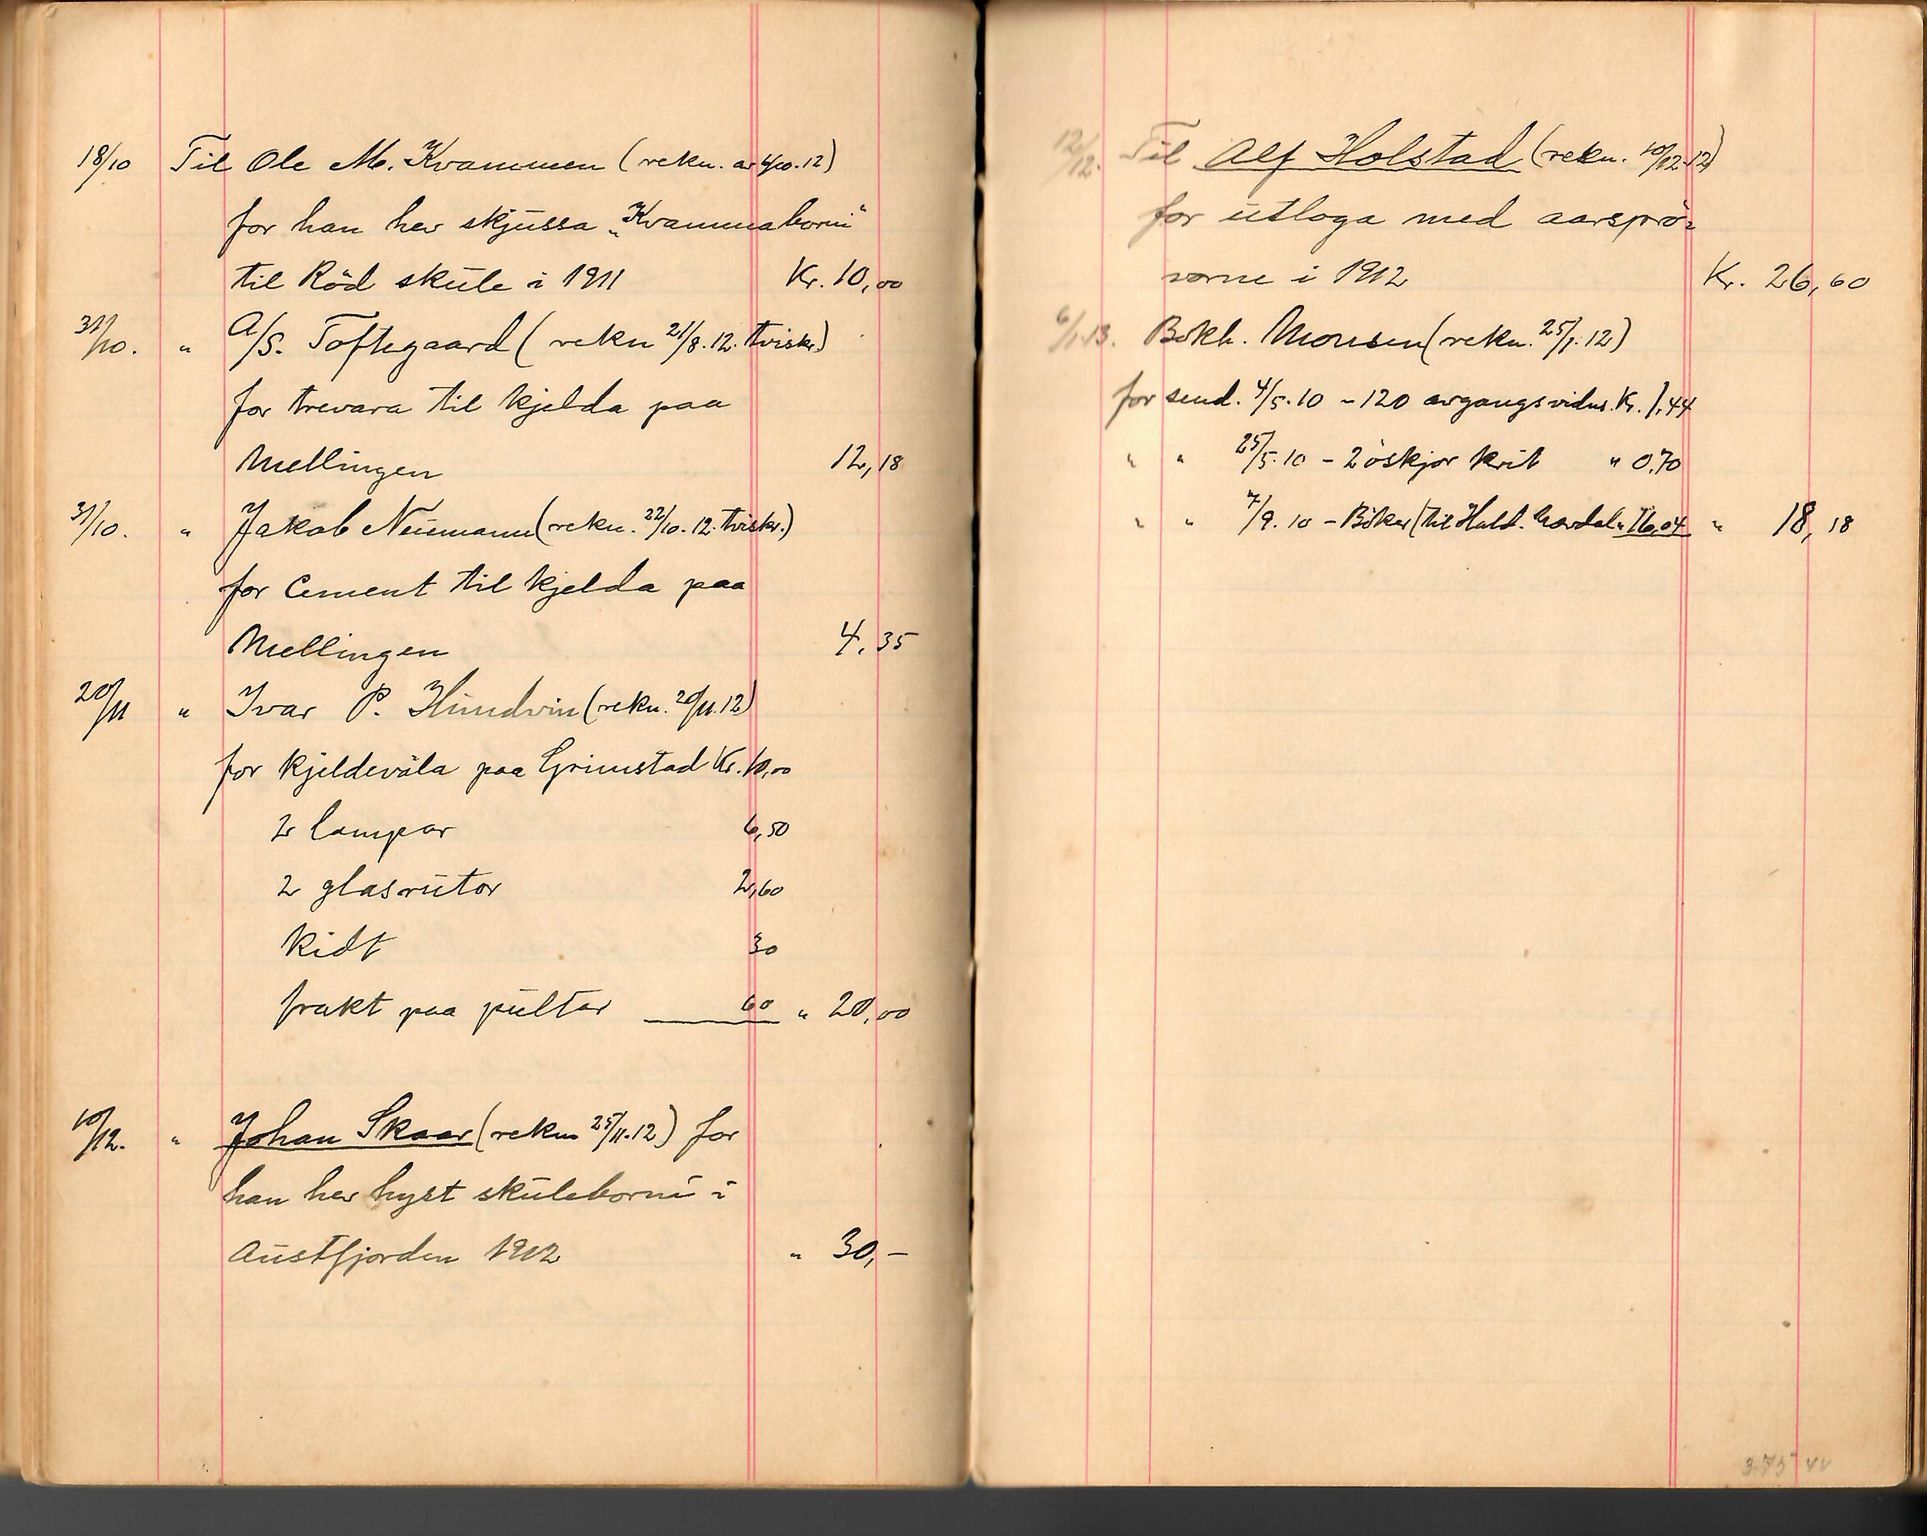 18/10 Til Ole M. Kvammen (rekn. av 4/10.12)
for han hev skjussa „Kvammaborni"
til Röd skule i 1911 Kr. 10,00
31/10. " A/S. Toftegaard (rekn 21/8.12. tviskr.)
for trevara til kjelda paa
Mellingen 12,18
31/10. " Jakob Neumann (rekn. 22/10.12. tviskr.)
for Cement til kjelda paa
Mellingen 4,35
20/11 " Ivar P. Hundvin (rekn. 20/11.12)
for kjeldevöla paa Grimstad Kr. 10,00
2 lampor 6,50
2 glasrutor 2,60
Kidt 30
frakt paa pultar 60 " 20,00
10/12. " Johan Skaar (rekn 25/11.12) for
han hev hyst skuleborni i
Austfjorden 1912 " 30,–
12/12. Til Alf Holstad (rekn. 10/12.12)
for utloga med aarsprö-
vorne i 1912 Kr. 26,60
6/1.13. Bokh. Monsen (rekn. 25/1.12)
for send. 4/5.10 – 120 avgangsvidn. Kr. 1,44
" " 25/5.10 – 2 öskjor krit " 0,70
" " 7/9.10 – Böker (til Hald. Mardal " 16,04 " 18,18